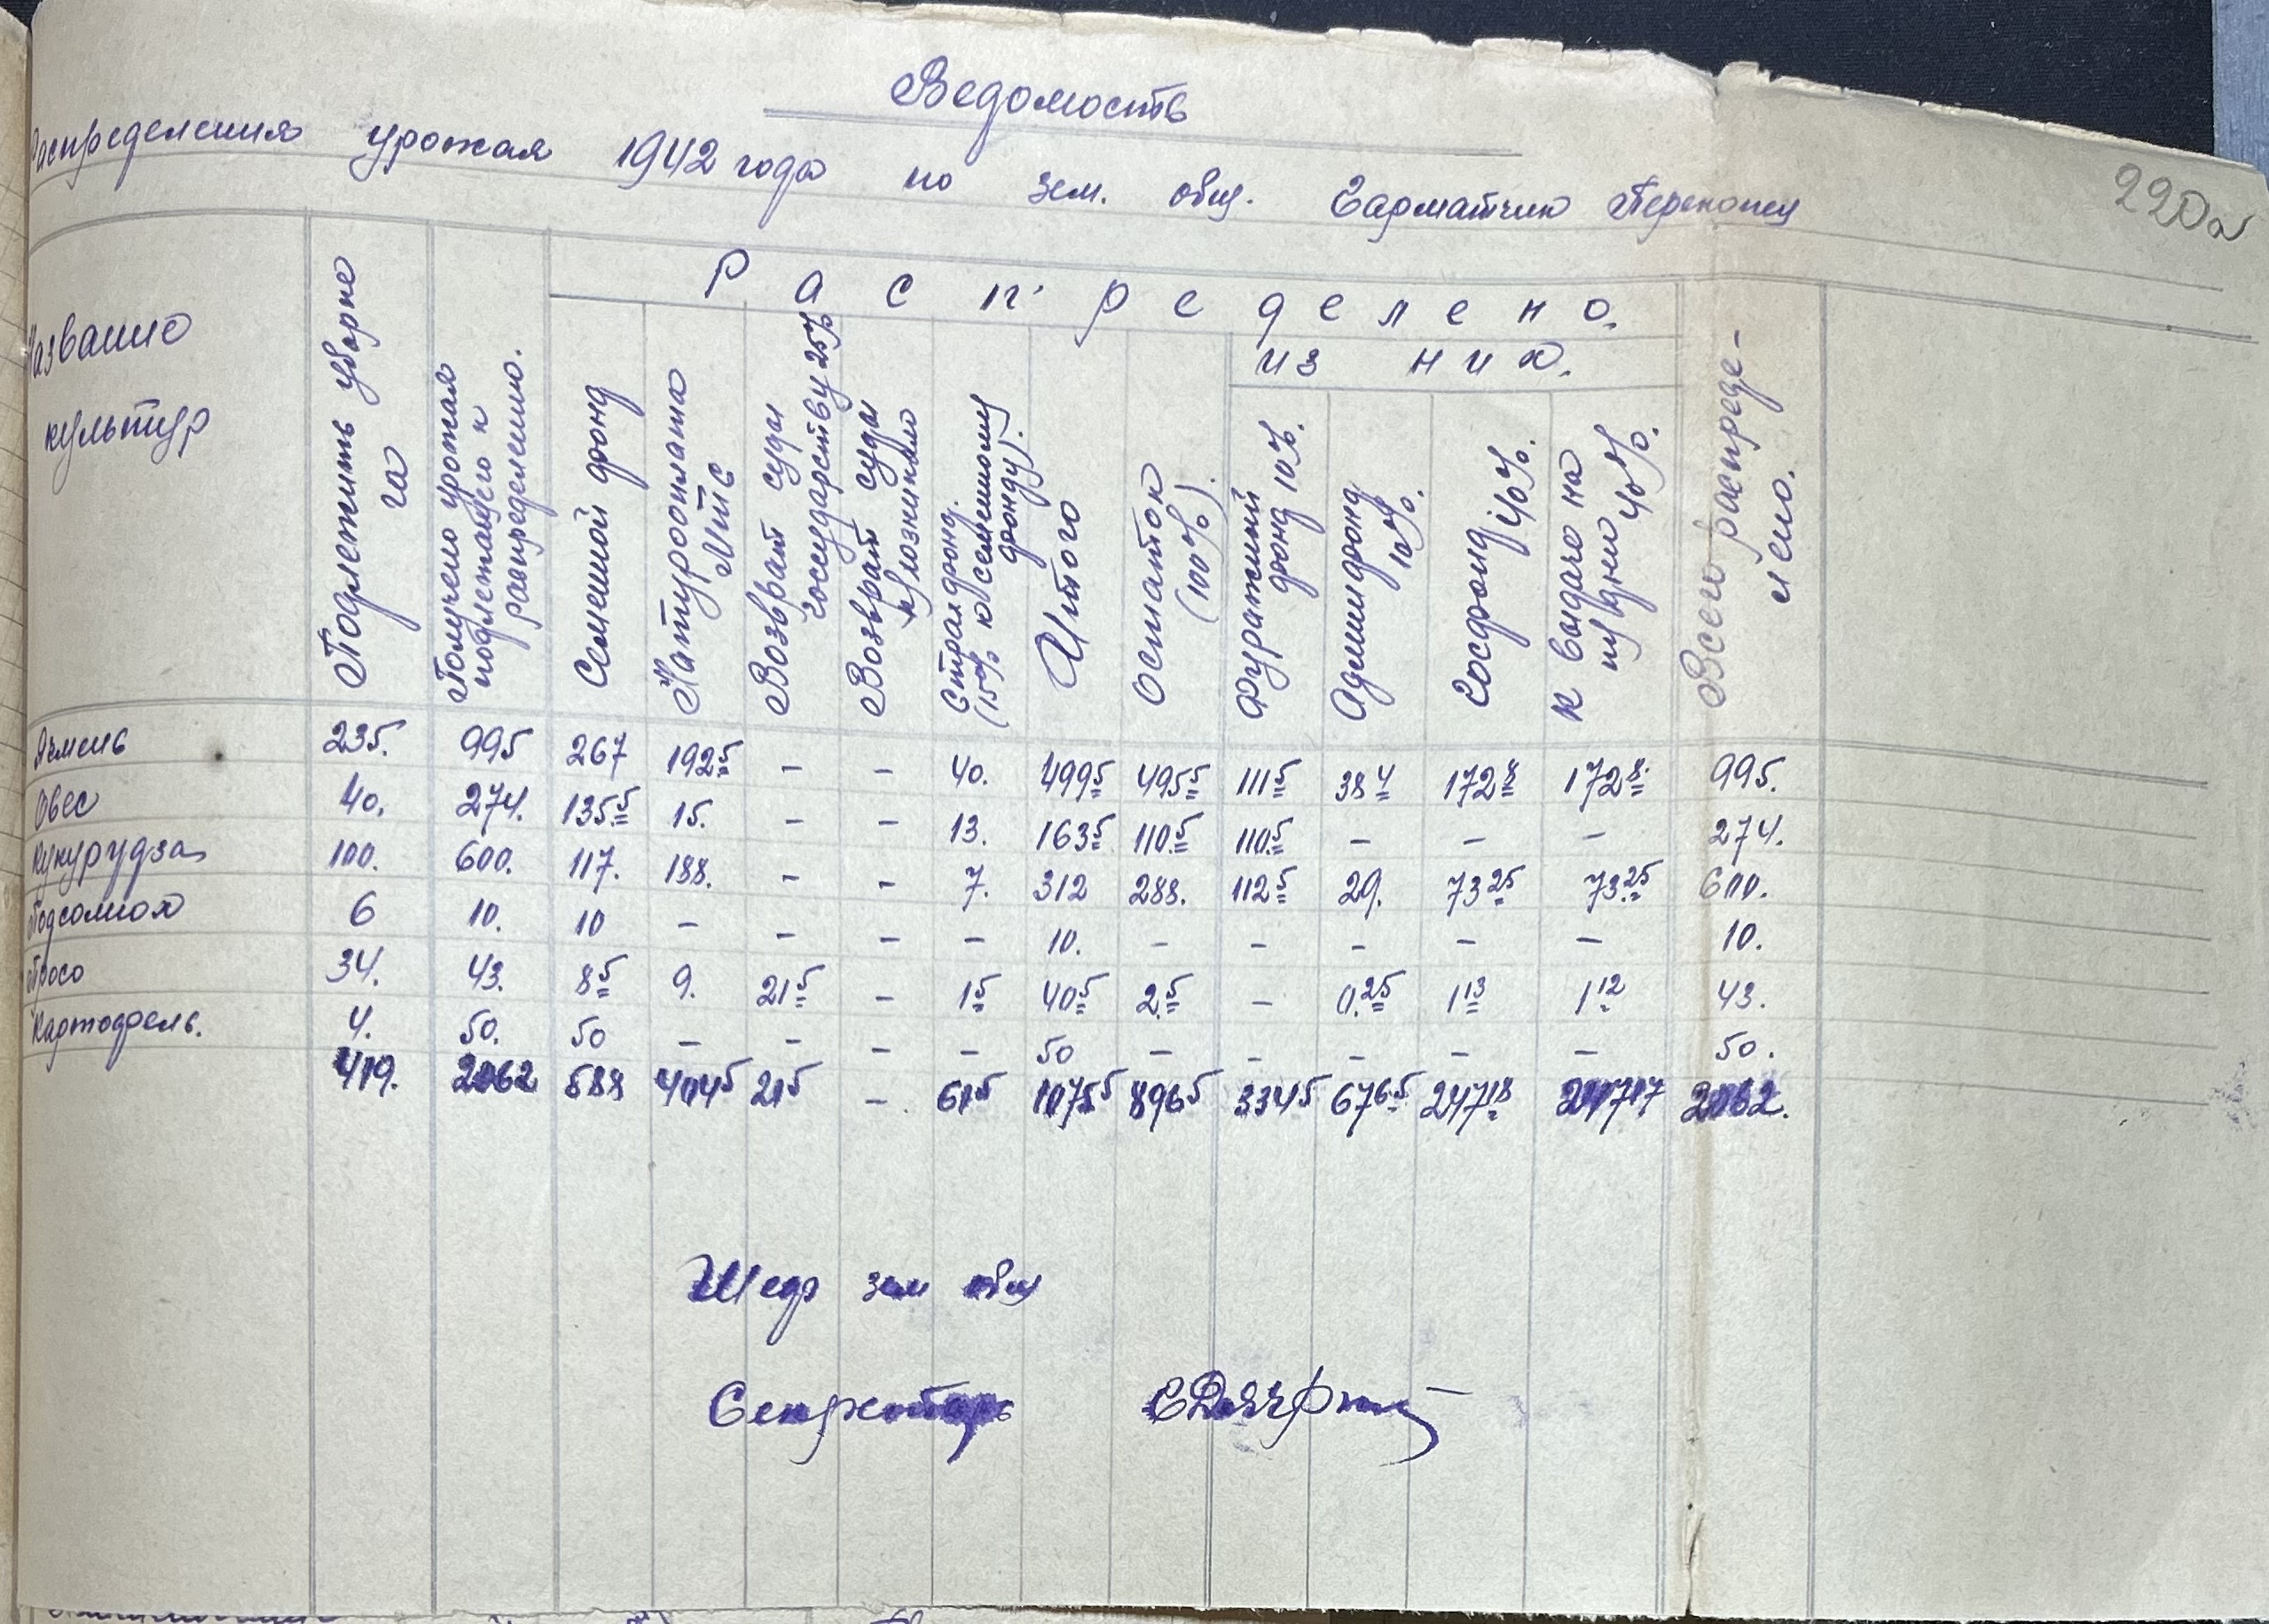 Ведомость
распределения урожая 1942 года по зем. общ. Гарматчик Перекопец
220а
Название культур
Подлежить уборке га
Получено урожая подлежащего к распределению.
Распределено.
Семенной фонд
Натуроплата МТС
Возврат суды государству 25%
Возврат суды
Страхфонд. (15% к семенному фонду).
Итого
Остаток (100%).
из них.
Фуражный фонд 10%.
Админфонд 10%.
Госфонд 40%.
К выдаче на 40%.
Всего распределено.
Ячмень 235. 995 267 192,5 – – 40. 499,5 495,5 111,5 38,4 172,8 172,8 995.
Овес 40. 274. 135,5 15. – – 13. 163,5 110,5 110,5 – – – 274.
Кукурудза 100. 600. 117. 188. – – 7. 312 288. 112,5 29. 73,25 73,25 600.
Подсолнох 6 10. 10 – – – – 10. – – – – – 10.
Просо 34. 43. 8,5 9. 21,5 – 1,5 40,5 2,5 – 0,25 1,13 1,12 43.
Картофель. 4. 50. 50 – – – – 50 – – – – – 50.
419. 588 404,5 21,5 – 61,5 1075,5 896,5 334,5 67,65 247,18 247,17
зем общ
Секретарь